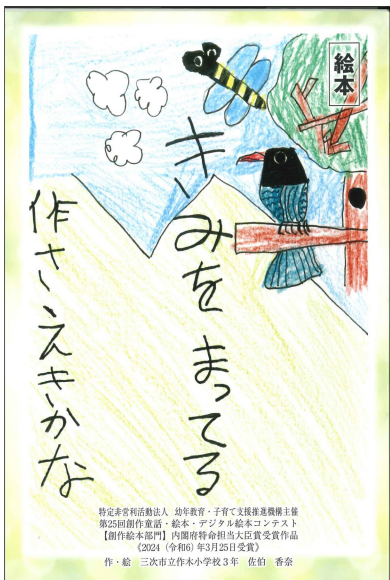 絵本
きみをまってる
作さえきかな
特定非営利活動法人 幼年教育・子育て支援推進機構主催
第25回創作童話・絵本・デジタル絵本コンテスト
【創作絵本部門】内閣府特命担当大臣賞受賞作品
《2024（令和6）年3月25日受賞》
作・絵 三次市立作木小学校3年 佐伯 香奈